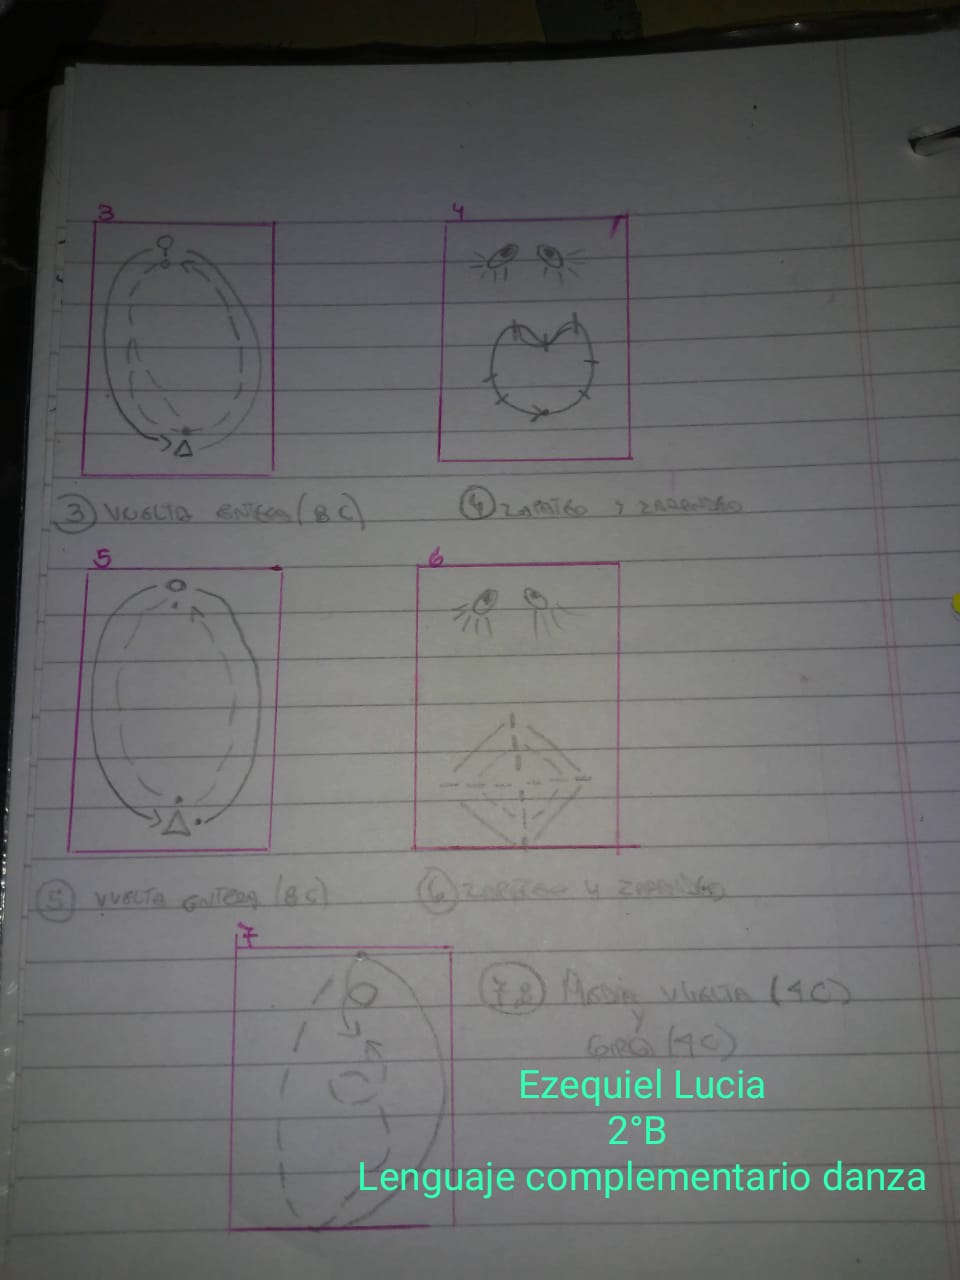 3 4
③ VUELTA ENTERA (8 C) ④ ZAPATEO Y ZARANDEO
5 6
⑤ VUELTA ENTERA (8 C) ⑥ ZAPATEO Y ZARANDEO
7
MEDIA VUELTA (4C)
Y
GIRO (4C)
Ezequiel Lucia
2°B
Lenguaje complementario danza